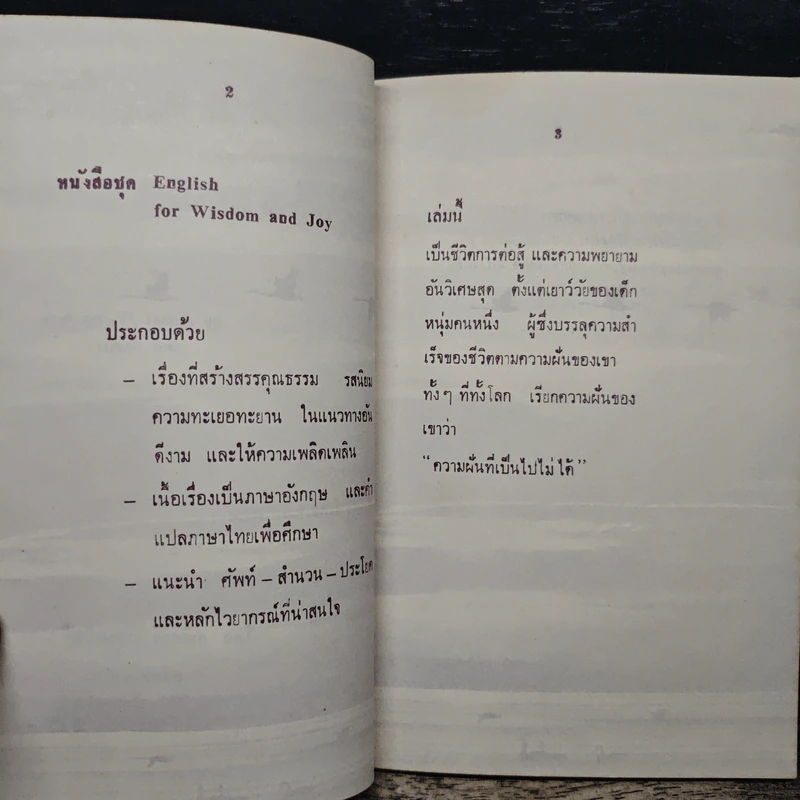 2
หนังสือชุด English
for Wisdom and Joy
ประกอบด้วย
– เรื่องที่สร้างสรรคุณธรรม รสนิยม
ความทะเยอทะยาน ในแนวทางอัน
ดีงาม และให้ความเพลิดเพลิน
– เนื้อเรื่องเป็นภาษาอังกฤษ และคำ
แปลภาษาไทยเพื่อศึกษา
– แนะนำ ศัพท์ – สำนวน – ประโยค
และหลักไวยากรณ์ที่น่าสนใจ
3
เล่มนี้
เป็นชีวิตการต่อสู้ และความพยายาม
อันวิเศษสุด ตั้งแต่เยาว์วัยของเด็ก
หนุ่มคนหนึ่ง ผู้ซึ่งบรรลุความสำ
เร็จของชีวิตตามความฝันของเขา
ทั้งๆ ที่ทั้งโลก เรียกความฝันของ
เขาว่า
“ความฝันที่เป็นไปไม่ได้”